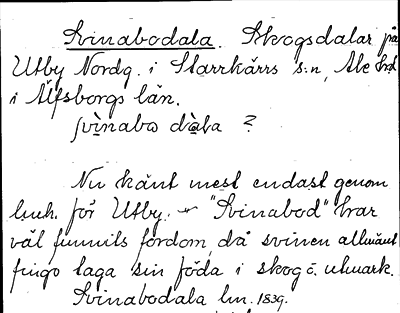 Svinabodala. Skogsdalar på
Utby Nordg. i Starrkärrs s:n, Ale hd
i Älfsborgs län.
svìnabo dàla ?
Nu känt mest endast genom
luk. för Utby. "Svinabod" har
väl funnits fordom, då svinen allmänt
fingo taga sin föda i skog o. utmark.
Svinabodala lm. 1839.